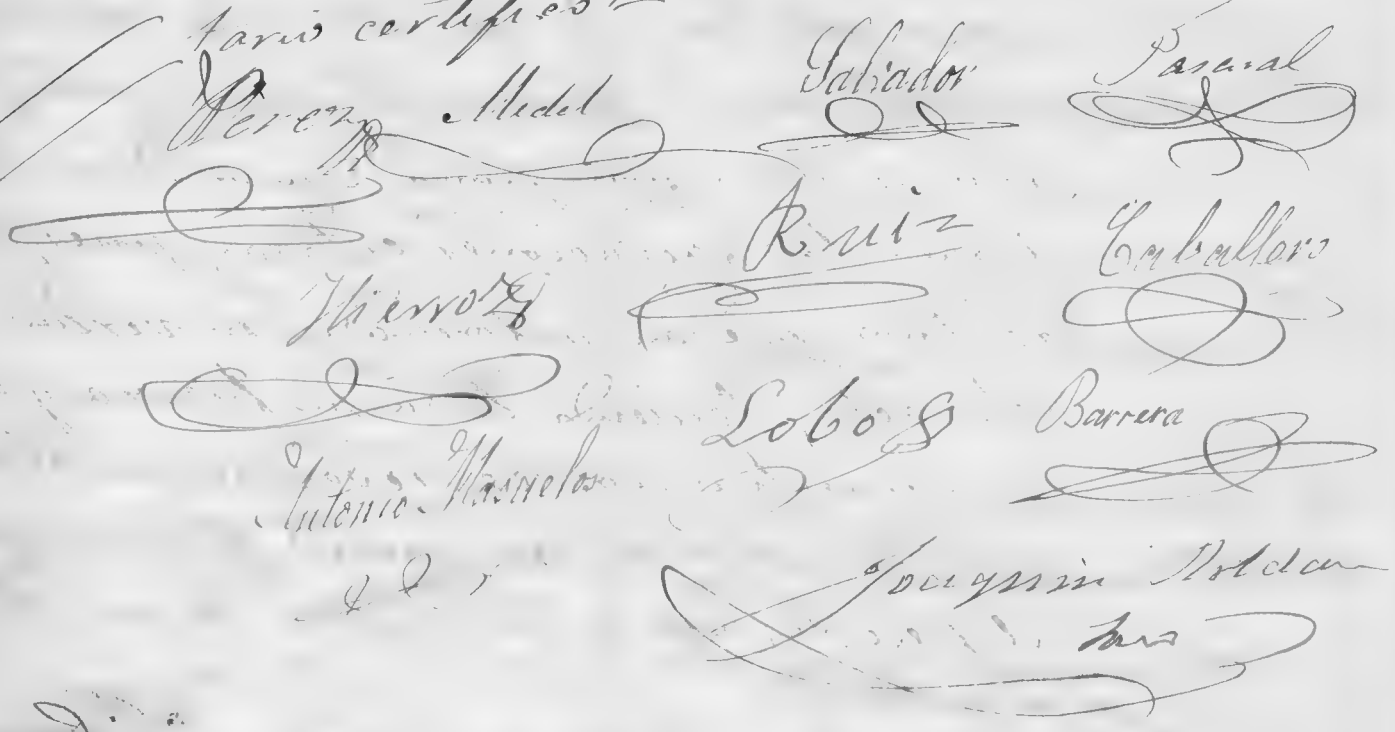 tario certifico
Perez Medel Salvador Pascual
Ruiz Caballero
Hierro
Lobo Barrera
Antonio
Joaquin Roldan